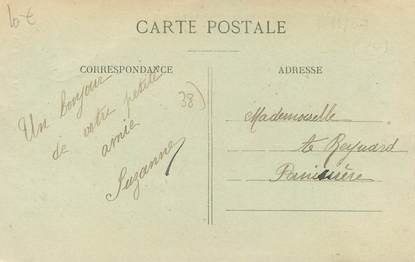 10€
CARTE POSTALE
CORRESPONDANCE
ADRESSE
Un bonjour
de votre petite
amie
Suzanne
38)
Mademoiselle
Reynard
Panissière